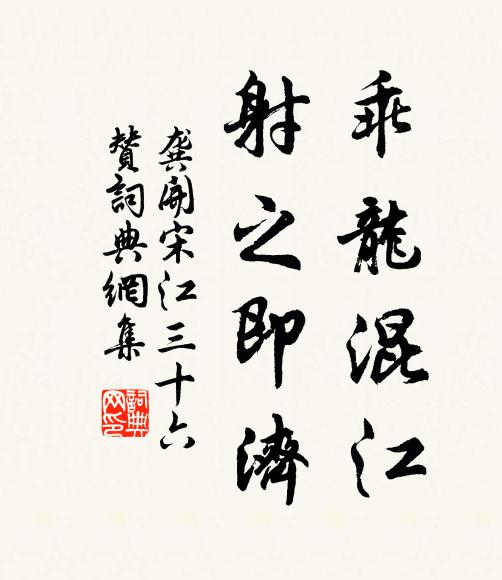 乖龍混江
射之即濟
龔開宋江三十六
贊詞典網集
詞典
网印